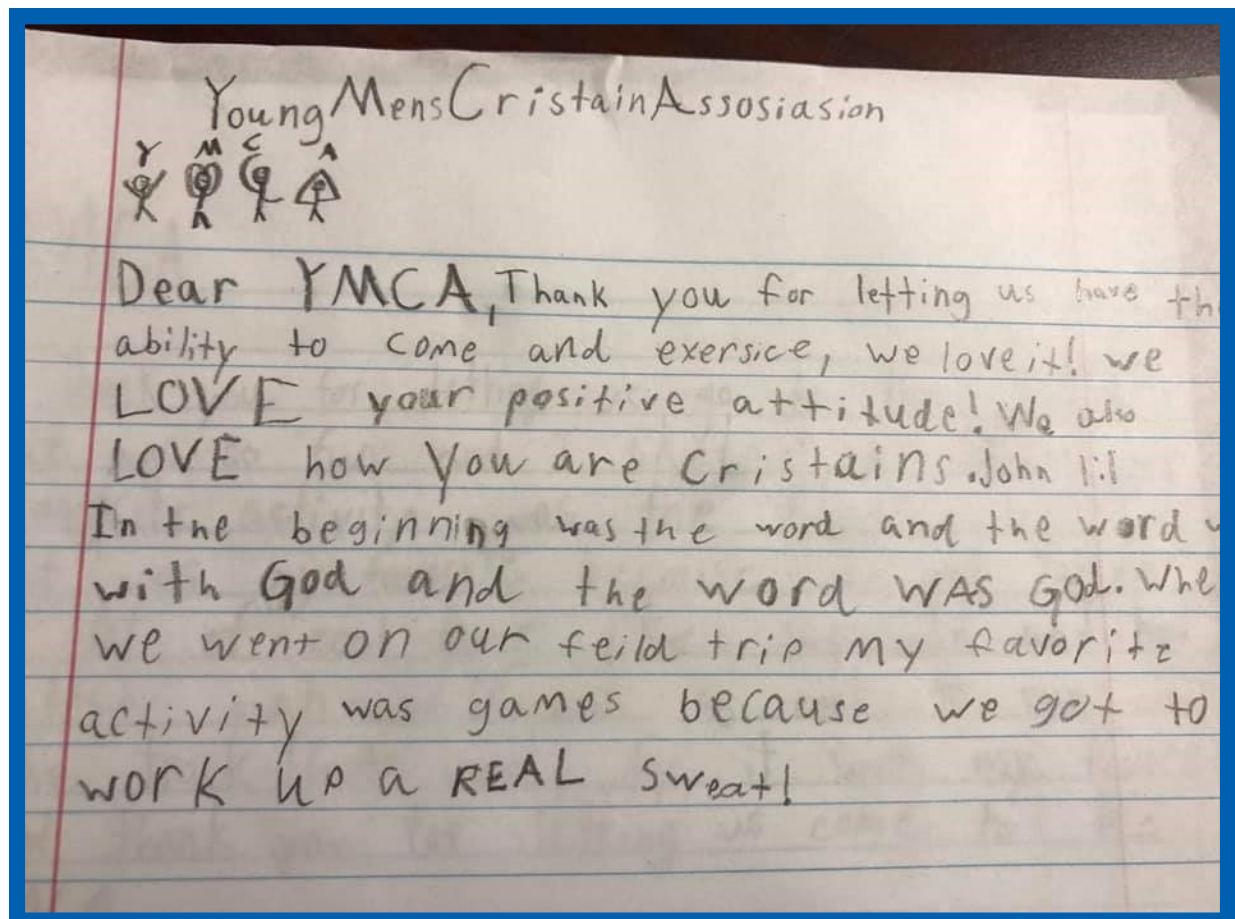 Young Mens Cristain Assosiasion
Y M C A
Dear YMCA, Thank you for letting us have th
ability to come and exersice, we love it! we
LOVE your positive attitude! We also
LOVE how you are Cristains. John 1:1
In the beginning was the word and the word w
with God and the word WAS God. Whe
we went on our feild trip my favorite
activity was games because we got to
work up a REAL sweat!